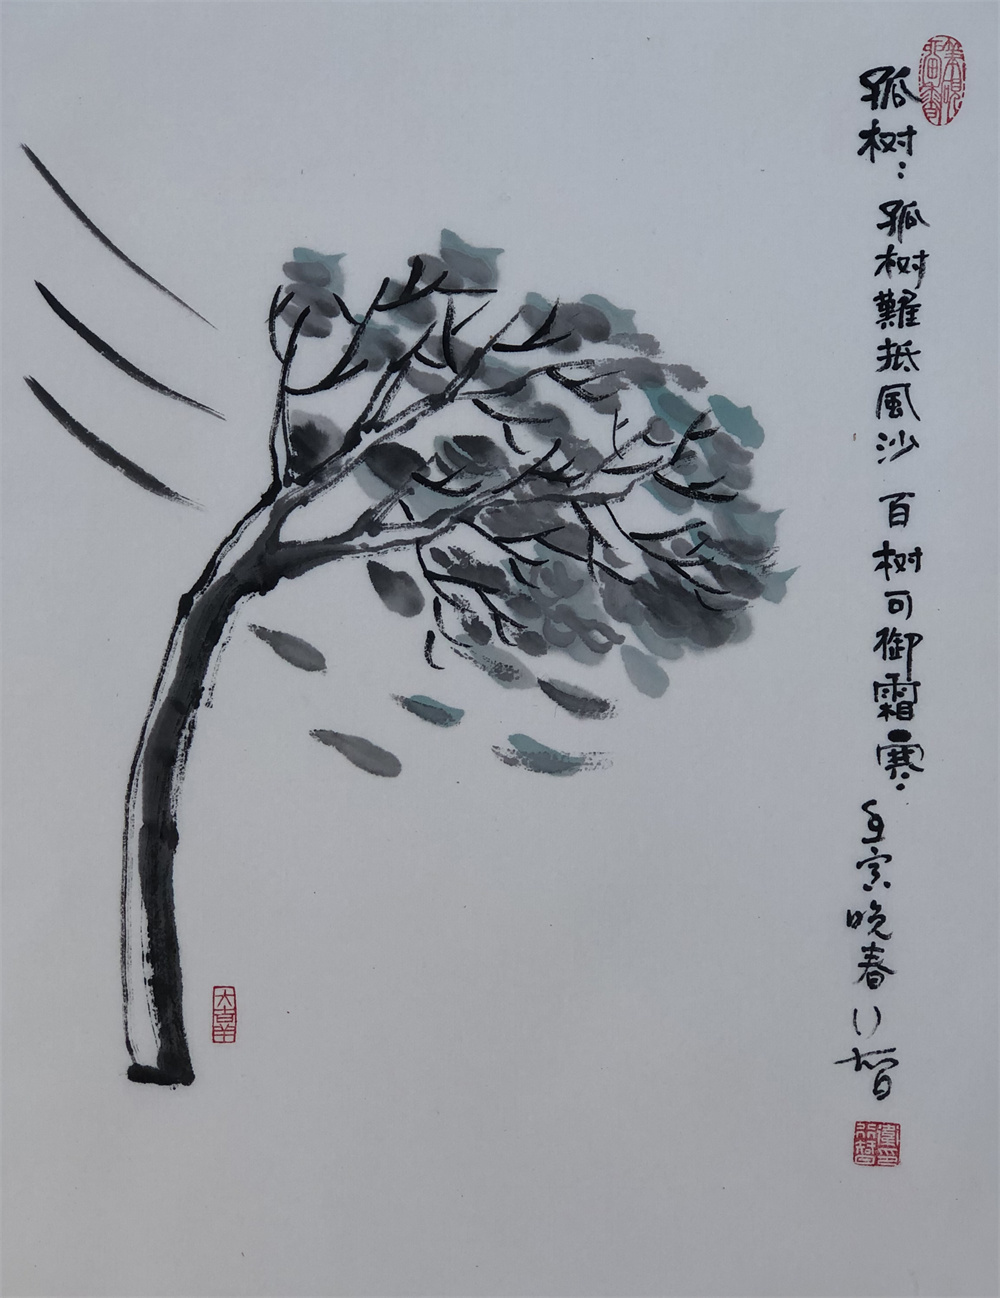 孤树：孤树難抵風沙 百树可御霜寒.
壬寅晚春行智
大吉羊